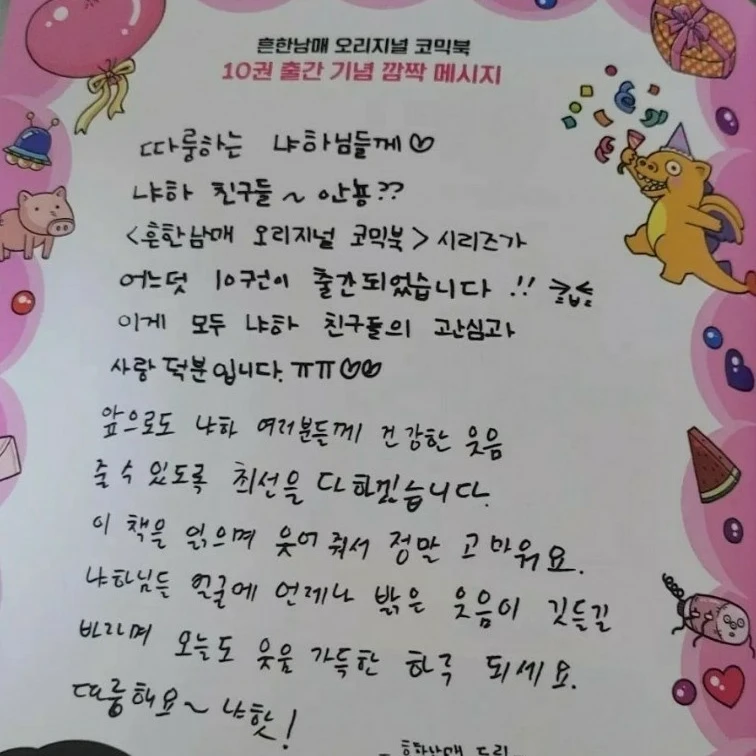 흔한남매 오리지널 코믹북
10권 출간 기념 깜짝 메시지
따룽하는 냐하님들께♡
냐하 친구들~ 안뇽??
<흔한남매 오리지널 코믹북> 시리즈가
어느덧 10권이 출간되었습니다!!
이게 모두 냐하 친구들의 관심과
사랑 덕분입니다. ㅠㅠ♡♡
앞으로도 냐하 여러분들께 건강한 웃음
줄 수 있도록 최선을 다하겠습니다.
이 책을 읽으며 웃어 줘서 정말 고마워요.
냐하님들 얼굴에 언제나 밝은 웃음이 깃들길
바라며 오늘도 웃음 가득한 하루 되세요.
따룽해요~ 냐핫!
- 흔한남매 드림 -